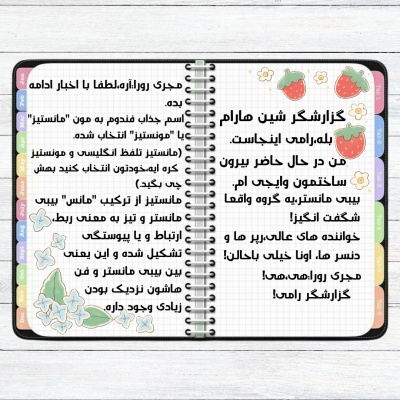 گزارشگر شین هارام
بله،رامی اینجاست.
من در حال حاضر بیرون
ساختمون وایجی ام.
بیبی مانستر،یه گروه واقعا
شگفت انگیز!
خواننده های عالی،رپر ها و
دنسر ها، اونا خیلی باحالن!
مجری رورا:هی،هی!
گزارشگر رامی!
مجری رورا:آره،لطفا با اخبار ادامه
بده.
اسم جذاب فندوم به مون "مانستیز"
یا "مونستیز" انتخاب شده.
(مانستیز تلفظ انگلیسی و مونستیز
کره ایه،خودتون انتخاب کنید بهش
چی بگید.)
مانستیز از ترکیب "مانس" بیبی
مانستر و تیز به معنی ربط،
ارتباط و یا پیوستگی
تشکیل شده و این یعنی
بین بیبی مانستر و فن
هاشون نزدیک بودن
زیادی وجود داره.